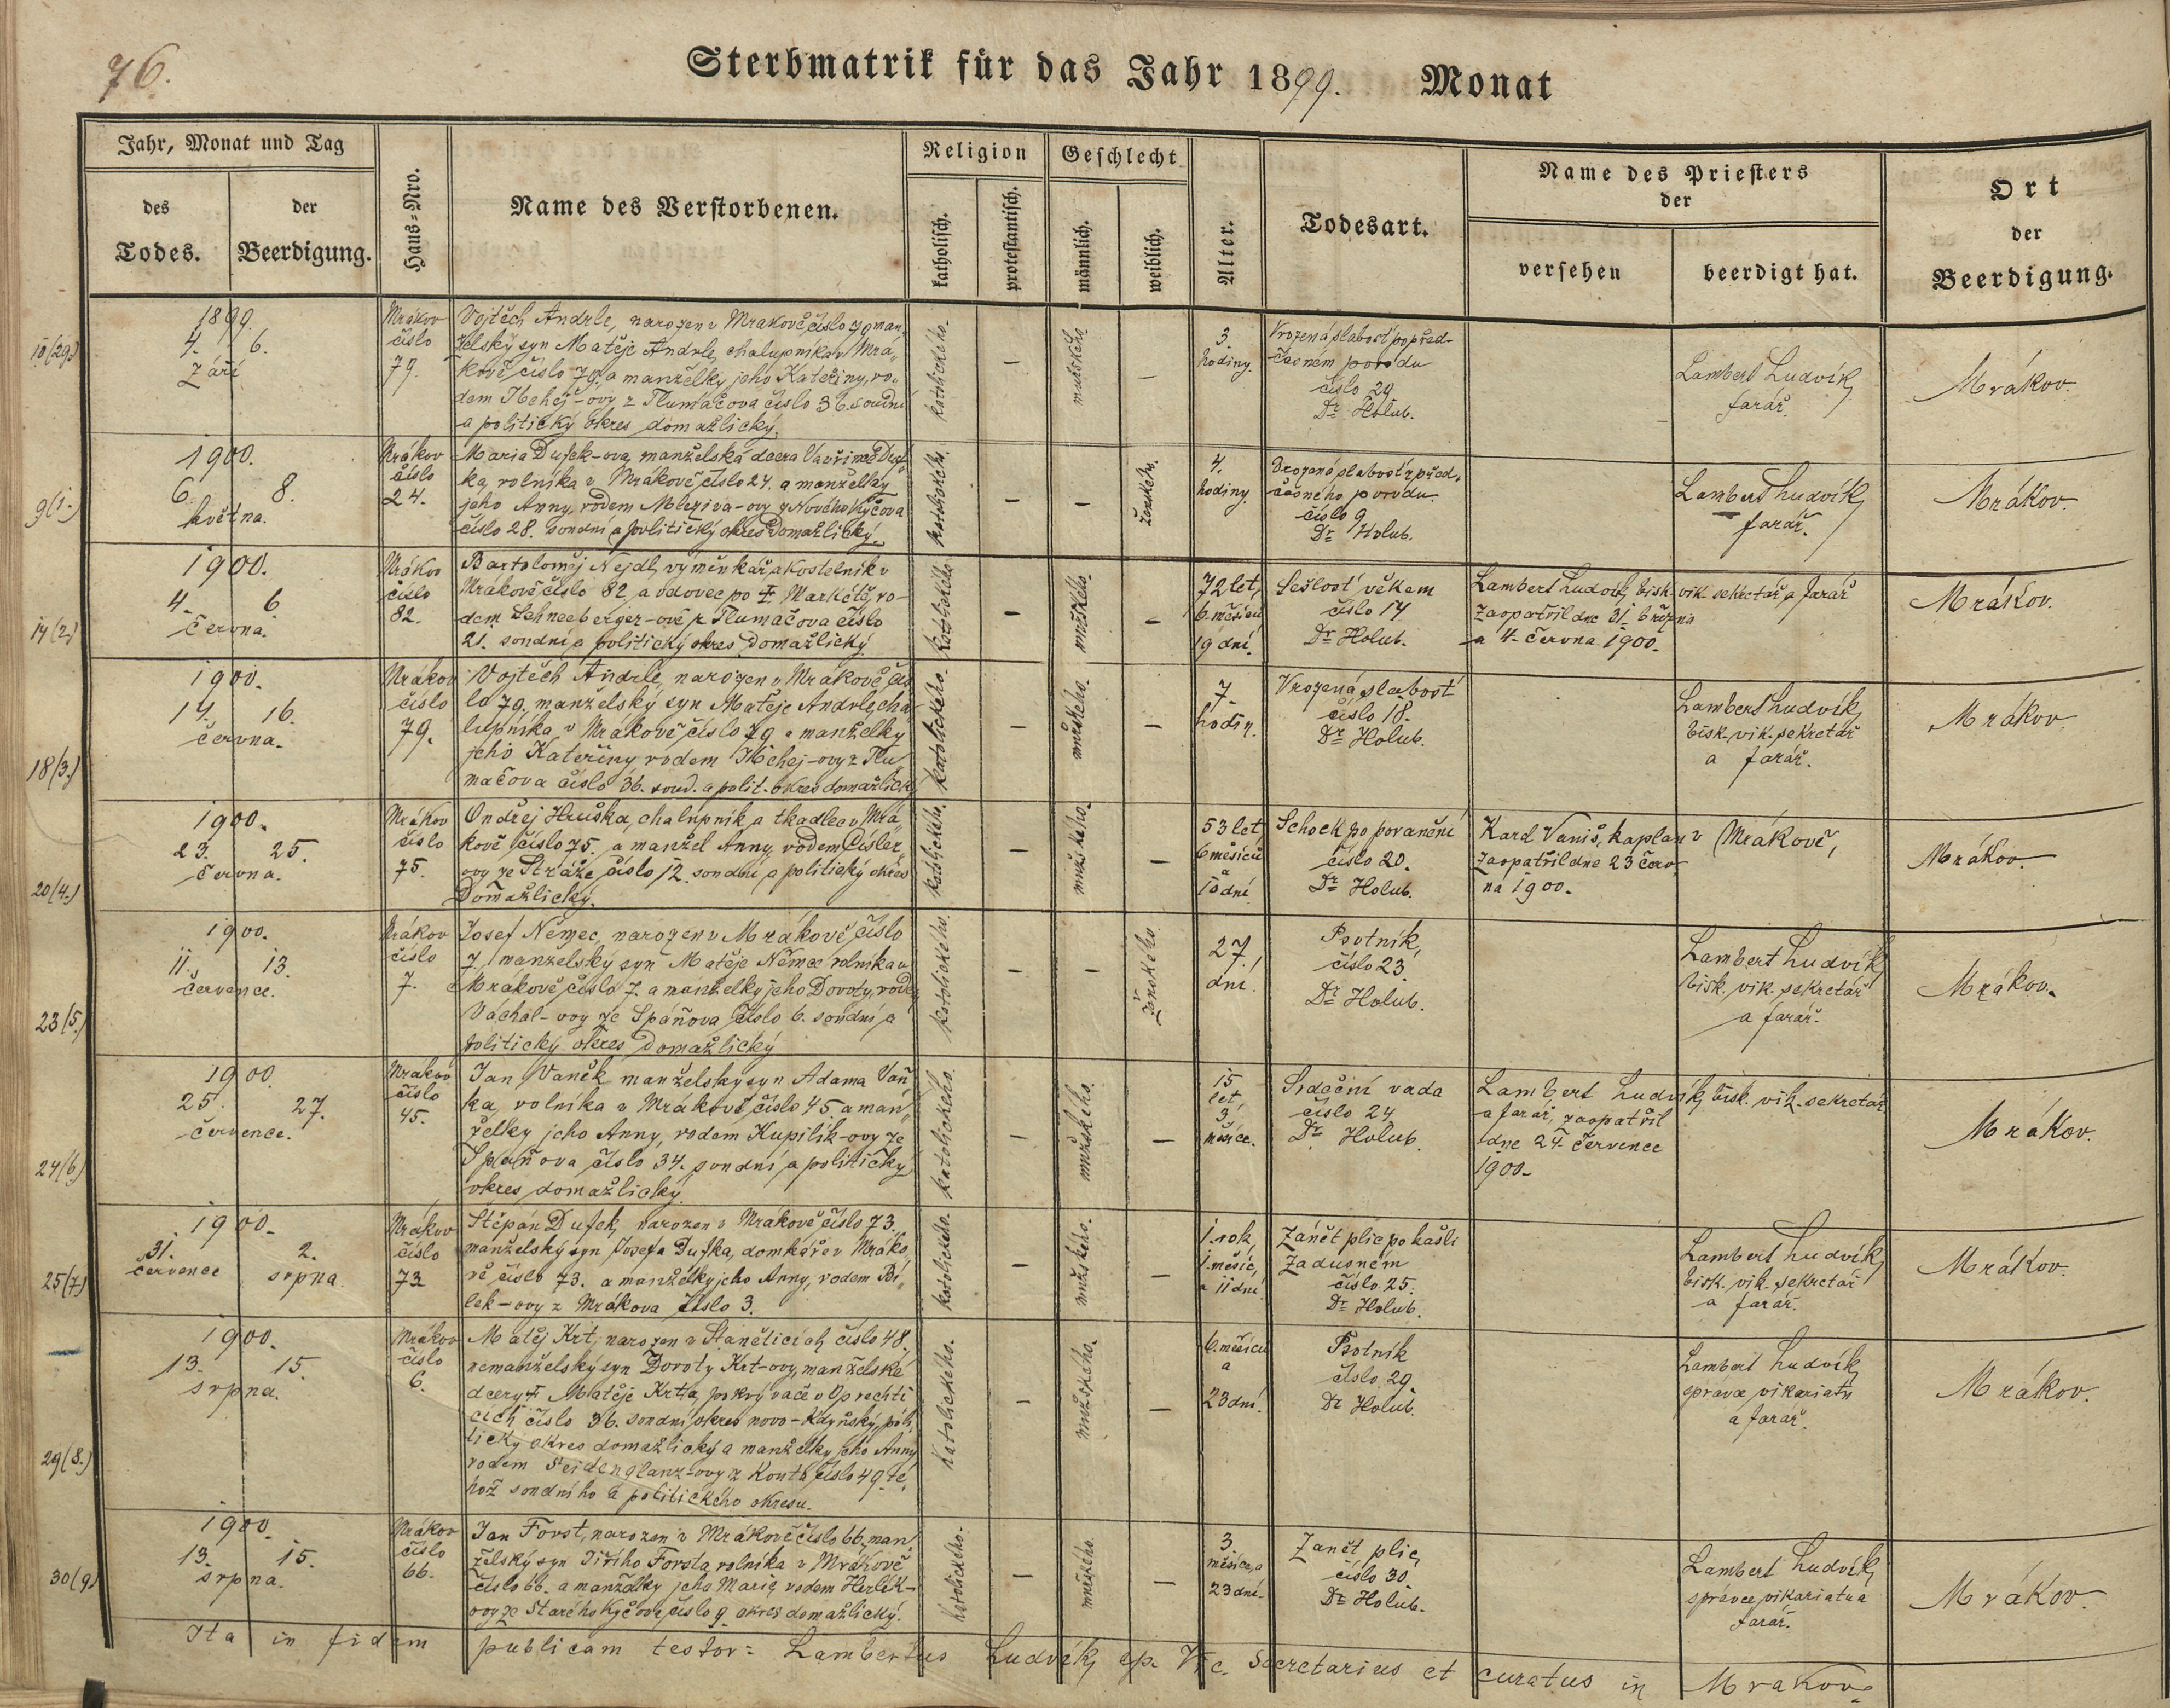 76.
Sterbmatrik für das Jahr 1899. Monat
Jahr, Monat und Tag
des Todes.
der Beerdigung.
Haus=Nro.
Name des Verstorbenen.
Religion
katholisch.
protestantisch.
Geschlecht
männlich.
weiblich.
Alter.
Todesart.
Name des Priesters
der
versehen
beerdigt hat.
Ort
der
Beerdigung.
1899.
4. 6.
září
Mrákov
číslo
79.
Vojtěch Andrle, narozen v Mrakově číslo 79 man„
želský syn Matěje Andrle, chalupníka v Mrá„
kově číslo 79. a manželky jeho Kateřiny, ro„
dem -ovy z Tlumačova číslo 36. soudní
a politický okres domažlický.
katolického.
–
mužského
–
3.
hodiny.
Vrozená slabost po před-
časném porodu
číslo 29.
Dr Holub.
Lambert Ludvík,
farář.
Mrákov.
9(1.)
1900.
6. 8.
května.
Mrákov
číslo
24.
Maria Dufek-ova, manželská dcera Vavřince Duf„
ka, rolníka v Mrákově číslo 24. a manželky
jeho Anny, rodem Mleziva-ovy z Nového Kyčova
číslo 28. soudní a politický okres Domažlický.
katolického.
–
–
ženského.
4.
hodiny
Vrozená slabost z před„
časného porodu
číslo 9
Dr Holub.
Lambert Ludvík,
farář.
Mrákov.
14(2.)
1900.
4. 6
června.
Mrákov
číslo
82.
Bartoloměj Nejdl, výměnkář a kostelník v
Mrákově číslo 82. a vdovec po † Markétě, ro-
dem Schneeberger-ově z Tlumačova číslo
21. soudní a politický okres Domažlický.
katolického
–
mužského.
–
72 let,
6. měsíců
19 dní.
Sešlost věkem
číslo 14
Dr Holub.
Lambert Ludvík, bisk. vik. sekretář a farář
zaopatřil dne 31. března
a 4. června 1900.
Mrákov.
18(3.)
1900.
14. 16.
června.
Mrákov
číslo
79.
Vojtěch Andrle, narozen v Mrákově čís
lo 79. manželský syn Matěje Andrle, cha„
lupníka v Mrákově číslo 79 a manželky
jeho Kateřiny rodem -ovy z Tlu
mačova číslo 36. soud. a polit. okres domažlický
katolického.
–
mužského.
–
7.
hodin.
Vrozená slabost
číslo 18.
Dr Holub.
Lambert Ludvík,
bisk. vik. sekretář
a farář.
Mrákov
20(4.)
1900.
23. 25.
června.
Mrákov
číslo
75.
Ondřej Hruška, chalupník a tkadlec v Mrá„
kově číslo 75. a manžel Anny, rodem Císler„
ovy ze Stráže číslo 12. soudní a politický okres
Domažlický.
katolického.
–
mužského.
–
53 let
6 měsíců
a
10 dní.
Schock po poranění
číslo 20.
Dr Holub.
Karel Vaniš, kaplan v Mrákově,
zaopatřil dne 23 červ-
na 1900.
Mrákov.
23(5.)
1900.
11. 13.
července.
Mrákov
číslo
7.
Josef Němec, narozen v Mrákově číslo
7. manželský syn Matěje Němce rolníka v
Mrákově číslo 7. a manželky jeho Doroty, rodem
Váchal-ovy ze Spáňova číslo 6. soudní a
politický okres Domažlický
katolického.
–
–
ženského
27.
dní.
Psotník,
číslo 23.
Dr Holub.
Lambert Ludvík,
bisk. vik. sekretář
a farář.
Mrákov.
24(6.)
1900.
25. 27.
července.
Mrákov
číslo
45.
Jan Vaněk, manželský syn Adama Vaň„
ka, rolníka v Mrákově číslo 45. a man„
želky jeho Anny, rodem Kupilík-ovy ze
Spáňova číslo 34. soudní a politický
okres domažlický.
katolického.
–
mužského.
–
15
let,
3
měsíce.
Srdeční vada
číslo 24,
Dr Holub.
Lambert Ludvík, bisk. vik. sekretář
a farář, zaopatřil
dne 24 července
1900.
Mrákov.
25(7.)
1900.
31. 2.
července srpna.
Mrákov
číslo
73
Štěpán Dufek, narozen v Mrákově číslo 73.
manželský syn Josefa Dufka, domkáře v Mráko„
vě číslo 73. a manželky jeho Anny, rodem Bí„
lek-ovy z Mrákova číslo 3.
katolického.
–
mužského.
–
1. rok,
1. měsíc,
a 11 dní
Zánět plic po kašli
zadusném
číslo 25.
Dr Holub.
Lambert Ludvík,
bisk. vik. sekretář
a farář.
Mrákov.
29(8.)
1900.
13. 15.
srpna.
Mrákov
číslo
6.
Matěj Krt, narozen v Staněticích číslo 48.
nemanželský syn Doroty Krt-ovy, manželské
dcery † Matěje Krta, pokrývače v Oprechti
cích číslo 36. soudní okres novo-Kdyňský, poli„
tický okres domažlický a manželky jeho Anny
rodem Seidenglanz-ovy z Kouta číslo 49. té„
hož soudního a politického okresu.
katolického.
–
mužského.
–
6. měsíců
a
23 dní.
Psotník
číslo 29.
Dr Holub.
Lambert Ludvík,
správce vikariatu
a farář.
Mrákov.
30(9)
1900.
13. 15.
srpna.
Mrákov
číslo
66.
Jan Forst, narozen v Mrákově číslo 66, man„
želský syn Jiřího Forsta, rolníka v Mrákově
číslo 66. a manželky jeho Marie rodem Herlík-
ovy ze Starého Kyčova číslo 9 okres domažlický.
katolického.
–
mužského.
–
3
měsíce, a
23 dní.
Zanět plic,
číslo 30
Dr Holub.
Lambert Ludvík,
správce vikariatu a
farář.
Mrákov.
Ita in fidem publicam testor: Lambertus Ludvík, ep. Vic. Secretarius et curatus in Mrakov.